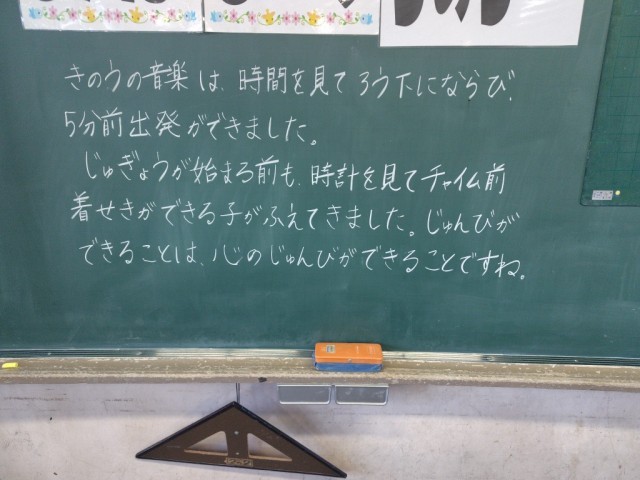 きのうの音楽は、時間を見てろう下にならび、
5分前出発ができました。
じゅぎょうが始まる前も、時計を見てチャイム前
着せきができる子がふえてきました。じゅんびが
できることは、心のじゅんびができることですね。